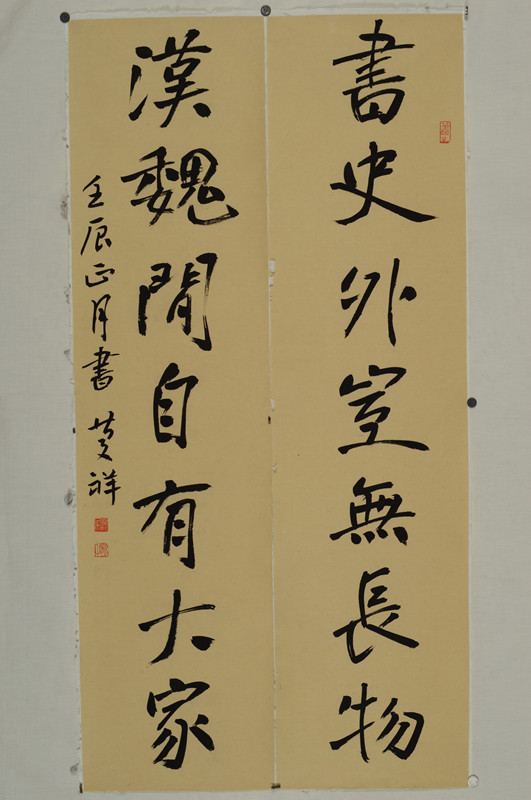 書史外豈無長物
漢魏閒自有大家
壬辰正月書 黄祥